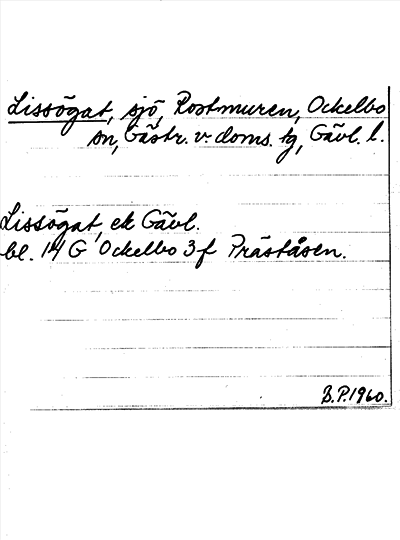 Lissögat, sjö, Rostmuren, Ockelbo
sn, Gästr. v. doms. tg, Gävl. l.
Lissögat, ek Gävl.
bl. 14 G Ockelbo 3f Pråståsen.
B.P. 1960.